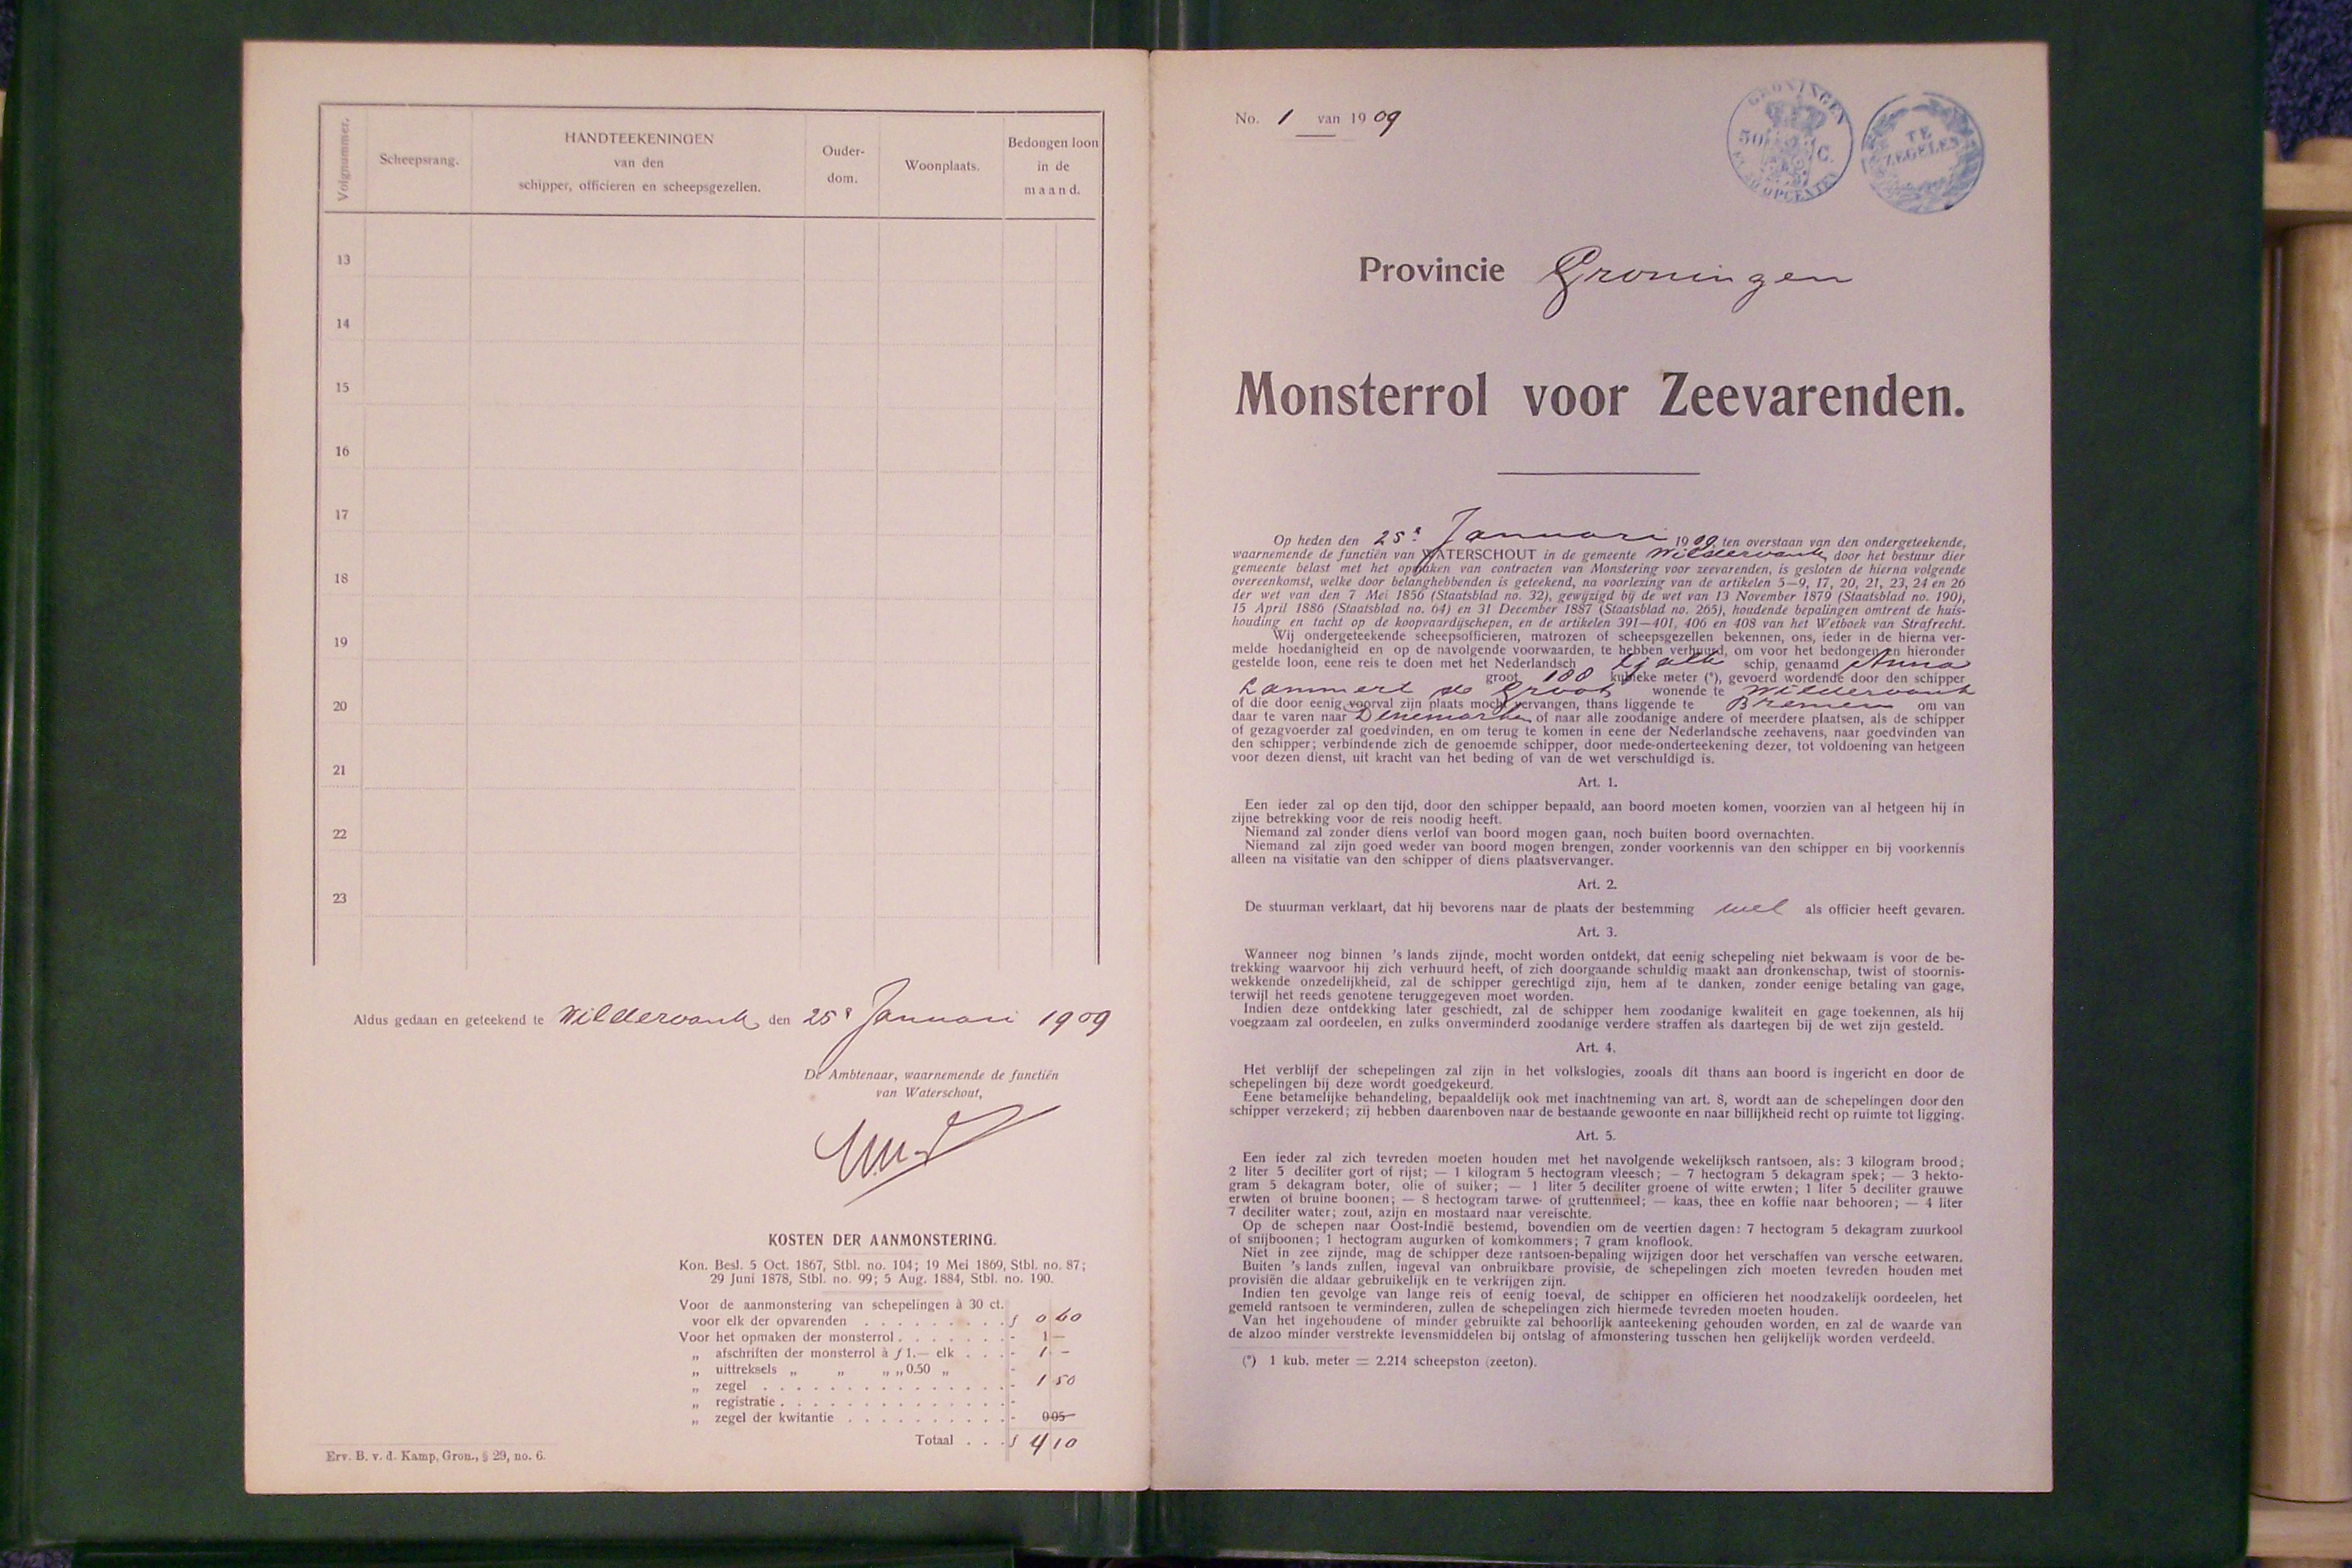 Volgnummer.
Scheepsrang.
HANDTEEKENINGEN
van den
schipper, officieren en scheepsgezellen.
Ouder-
dom.
Woonplaats.
Bedongen loon
in de
maand.
13
14
15
16
17
18
19
20
21
22
23
Aldus gedaan en geteekend te Wildervank, den 25e Januari 1909
De Ambtenaar, waarnemende de functiën
van Waterschout,
KOSTEN DER AANMONSTERING.
Kon. Besl. 5 Oct. 1867, Stbl. no. 104; 19 Mei 1869, Stbl. no. 87;
29 Juni 1878, Stbl. no. 99; 5 Aug. 1884, Stbl. no. 190.
Voor de aanmonstering van schepelingen à 30 ct.
voor elk der opvarenden . . . . . . . . . f 0 60
Voor het opmaken der monsterrol . . . . . . . - 1 —
„ afschriften der monsterrol à f 1.— elk . . . - 1 -
„ uittreksels „ „ „ „ 0.50 „ -
„ zegel . . . . . . . . . . . . . . . - 1 50
„ registratie . . . . . . . . . . . . . . -
„ zegel der kwitantie . . . . . . . . . . - 0 05
Totaal . . . f 4 10
Erv. B. v. d. Kamp, Gron., § 29, no. 6.
No. 1 van 1909
GRONINGEN
50 C.
OPCENTEN
TE
ZEGELEN
Provincie Groningen
Monsterrol voor Zeevarenden.
Op heden den 25e Januari 1909 ten overstaan van den ondergeteekende,
waarnemende de functiën van WATERSCHOUT in de gemeente Wildervank, door het bestuur dier
gemeente belast met het opmaken van contracten van Monstering voor zeevarenden, is gesloten de hierna volgende
overeenkomst, welke door belanghebbenden is geteekend, na voorlezing van de artikelen 5—9, 17, 20, 21, 23, 24 en 26
der wet van den 7 Mei 1856 (Staatsblad no. 32), gewijzigd bij de wet van 13 November 1879 (Staatsblad no. 190),
15 April 1886 (Staatsblad no. 64) en 31 December 1887 (Staatsblad no. 265), houdende bepalingen omtrent de huis-
houding en tucht op de koopvaardijschepen, en de artikelen 391—401, 406 en 408 van het Wetboek van Strafrecht.
Wij ondergeteekende scheepsofficieren, matrozen of scheepsgezellen bekennen, ons, ieder in de hierna ver-
melde hoedanigheid en op de navolgende voorwaarden, te hebben verhuurd, om voor het bedongen en hieronder
gestelde loon, eene reis te doen met het Nederlandsch tjalk schip, genaamd Anna
groot 188 kubieke meter (*), gevoerd wordende door den schipper
Lammert de Groot wonende te Wildervank
of die door eenig voorval zijn plaats mocht vervangen, thans liggende te Bremen om van
daar te varen naar Denemarken of naar alle zoodanige andere of meerdere plaatsen, als de schipper
of gezagvoerder zal goedvinden, en om terug te komen in eene der Nederlandsche zeehavens, naar goedvinden van
den schipper; verbindende zich de genoemde schipper, door mede-onderteekening dezer, tot voldoening van hetgeen
voor dezen dienst, uit kracht van het beding of van de wet verschuldigd is.
Art. 1.
Een ieder zal op den tijd, door den schipper bepaald, aan boord moeten komen, voorzien van al hetgeen hij in
zijne betrekking voor de reis noodig heeft.
Niemand zal zonder diens verlof van boord mogen gaan, noch buiten boord overnachten.
Niemand zal zijn goed weder van boord mogen brengen, zonder voorkennis van den schipper en bij voorkennis
alleen na visitatie van den schipper of diens plaatsvervanger.
Art. 2.
De stuurman verklaart, dat hij bevorens naar de plaats der bestemming wel als officier heeft gevaren.
Art. 3.
Wanneer nog binnen 's lands zijnde, mocht worden ontdekt, dat eenig schepeling niet bekwaam is voor de be-
trekking waarvoor hij zich verhuurd heeft, of zich doorgaande schuldig maakt aan dronkenschap, twist of stoornis-
wekkende onzedelijkheid, zal de schipper gerechtigd zijn, hem af te danken, zonder eenige betaling van gage,
terwijl het reeds genotene teruggegeven moet worden.
Indien deze ontdekking later geschiedt, zal de schipper hem zoodanige kwaliteit en gage toekennen, als hij
voegzaam zal oordeelen, en zulks onverminderd zoodanige verdere straffen als daartegen bij de wet zijn gesteld.
Art. 4.
Het verblijf der schepelingen zal zijn in het volkslogies, zooals dit thans aan boord is ingericht en door de
schepelingen bij deze wordt goedgekeurd.
Eene betamelijke behandeling, bepaaldelijk ook met inachtneming van art. 8, wordt aan de schepelingen door den
schipper verzekerd; zij hebben daarenboven naar de bestaande gewoonte en naar billijkheid recht op ruimte tot ligging.
Art. 5.
Een ieder zal zich tevreden moeten houden met het navolgende wekelijksch rantsoen, als: 3 kilogram brood;
2 liter 5 deciliter gort of rijst; — 1 kilogram 5 hectogram vleesch; — 7 hectogram 5 dekagram spek; — 3 hekto-
gram 5 dekagram boter, olie of suiker; — 1 liter 5 deciliter groene of witte erwten; 1 liter 5 deciliter grauwe
erwten of bruine boonen; — 8 hectogram tarwe- of gruttenmeel; — kaas, thee en koffie naar behooren; — 4 liter
7 deciliter water; zout, azijn en mostaard naar vereischte.
Op de schepen naar Oost-Indië bestemd, bovendien om de veertien dagen: 7 hectogram 5 dekagram zuurkool
of snijboonen; 1 hectogram augurken of komkommers; 7 gram knoflook.
Niet in zee zijnde, mag de schipper deze rantsoen-bepaling wijzigen door het verschaffen van versche eetwaren.
Buiten 's lands zullen, ingeval van onbruikbare provisie, de schepelingen zich moeten tevreden houden met
provisiën die aldaar gebruikelijk en te verkrijgen zijn.
Indien ten gevolge van lange reis of eenig toeval, de schipper en officieren het noodzakelijk oordeelen, het
gemeld rantsoen te verminderen, zullen de schepelingen zich hiermede tevreden moeten houden.
Van het ingehoudene of minder gebruikte zal behoorlijk aanteekening gehouden worden, en zal de waarde van
de alzoo minder verstrekte levensmiddelen bij ontslag of afmonstering tusschen hen gelijkelijk worden verdeeld.
(*) 1 kub. meter = 2.214 scheepston (zeeton).